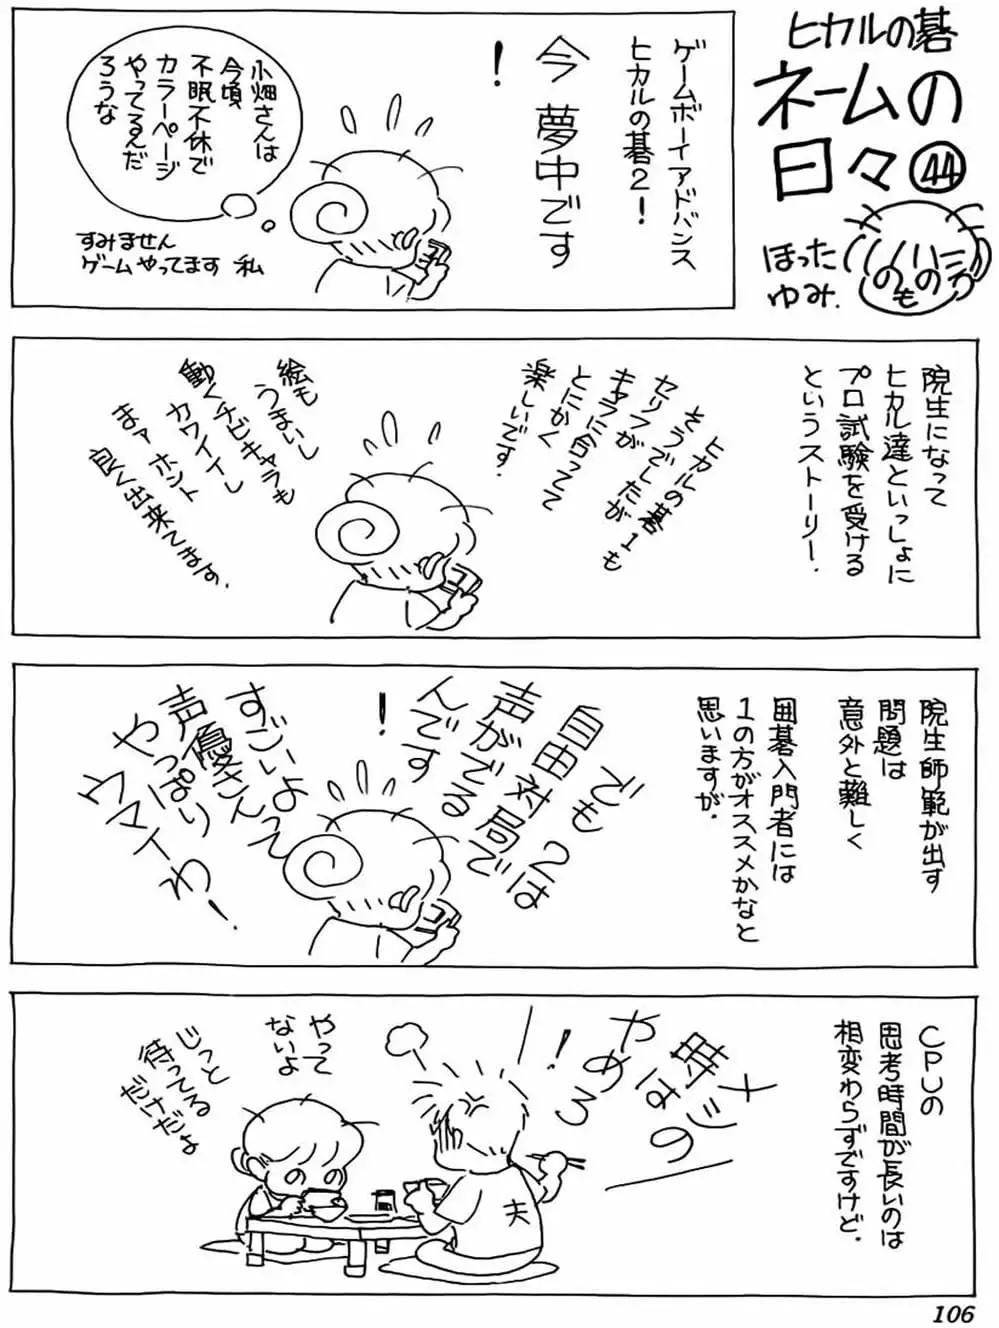 ヒカルの碁
ネームの
日々㊹
ほった
ゆみ.
ゲームボーイアドバンス
ヒカルの碁2!
今 夢中です
!
小畑さんは
今頃
不眠不休で
カラーページ
やってるんだ
ろうな
すみません
ゲームやってます 私
院生になって
ヒカル達といっしょに
プロ試験を受ける
というストーリー.
ヒカルの碁1も
そうでしたが
セリフが
キャラに合ってて
とにかく
楽しいです.
絵も
うまいし
動くチビキャラも
カワイイし
まァ ホント
良く出来てます.
院生師範が出す
問題は
意外と難しく
囲碁入門者には
1の方がオススメかなと
思いますが.
でも 2は
自由対局で
声がでる
んです
!
すごいよっ
声優さん
やっぱり
ウマイわ!
CPUの
思考時間が長いのは
相変わらずですけど.
メシの
時は
やめろ
!
やって
ないよ
じっと
待ってる
だけだよ
夫
106